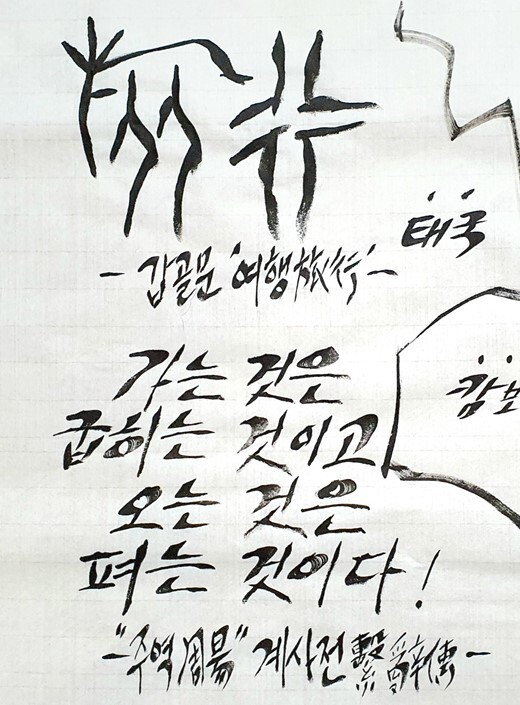 旅行
- 갑골문 '여행旅行' -
태국
가는 것은
굽히는 것이고
캄보
오는 것은
펴는 것이다!
- "주역周易" 계사전繫辭傳 -